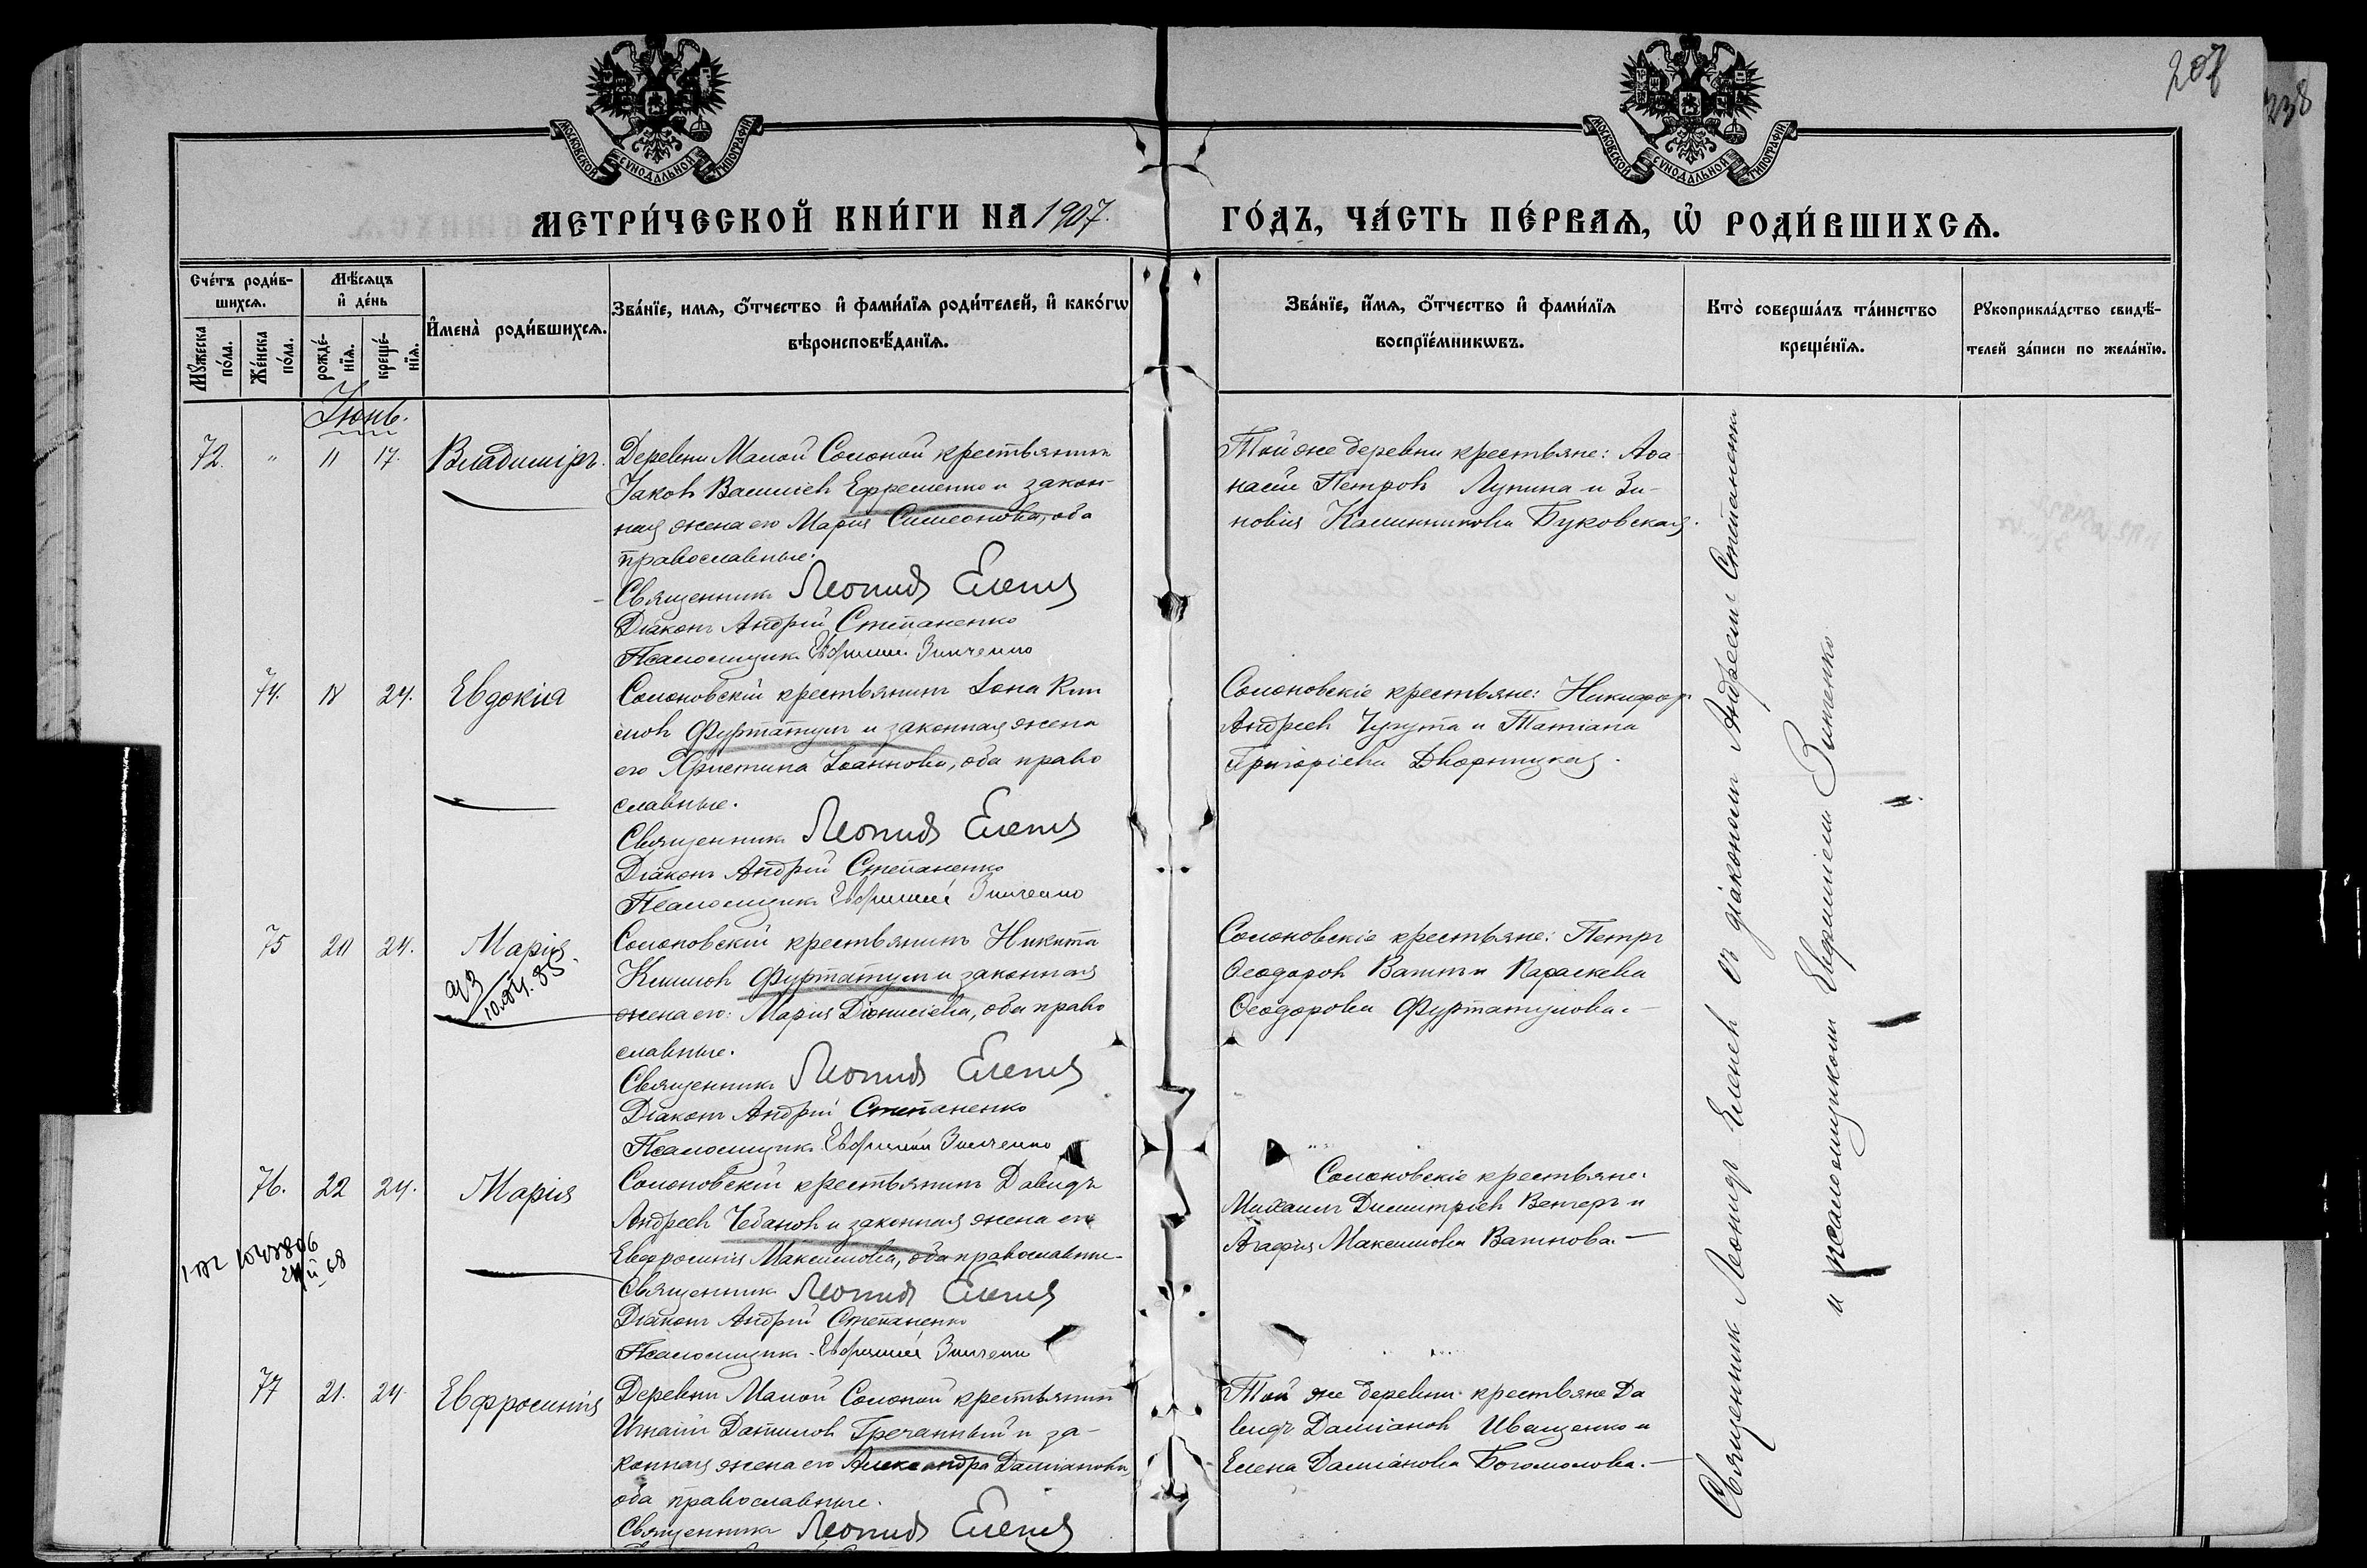 207
238
МОСКОВСКОЙ СУНОДАЛЬНОЙ ТИПОГРАФІИ
МОСКОВСКОЙ СУНОДАЛЬНОЙ ТИПОГРАФІИ
МЕТРИ́ЧЕСКОЙ КНИ́ГИ НА 1907.
ГО́ДЪ, ЧА́СТЬ ПЕ́РВАѦ, Ѡ҆ РОДИ́ВШИХСѦ.
Сче́тъ роди́в-
шихсѧ.
Мꙋ́жеска по́ла.
Же́нска по́ла.
Мѣ́сѧцъ
и҆ де́нь
рожде́-
нїѧ.
креще́-
нїѧ.
И҆мена̀ роди́вшихсѧ.
Зва́нїе, имѧ, ѻ҆́тчество и҆ фами́лїѧ роди́телей, и҆ како́гѡ
вѣроисповѣ́данїѧ.
Зва́нїе, и҆́мѧ, ѻ҆́тчество и҆ фами́лїѧ
воспрїе́мникѡвъ.
Кто̀ соверша́лъ та́инство
креще́нїѧ.
Рꙋкоприкла́дство свидѣ́-
телей за́писи по жела́нїю.
Іюнь.
72. " 11 17. Владиміръ.
Деревни Малой Солоной крестьянинъ
Іаковъ Василіевъ Ефременко и закон-
ная жена его Марія Симеонова, оба
православные.
Священникъ Леонидъ Еленевъ
Діаконъ Андрей Степаненко
Псаломщикъ Евфимій Зинченко
Той же деревни крестьяне: Аѳа
насій Петровъ Лупина и Зи-
новія Калинникова Буковская.
74. 18 24. Евдокія
Солоновскій крестьянинъ Іона Кли
мовъ Фуртатулъ и законная жена
его Христина Іоаннова, оба право
славные.
Священникъ Леонидъ Еленевъ
Діаконъ Андрей Степаненко
Псаломщикъ Евфимій Зинченко
Солоновскіе крестьяне: Никифоръ
Андреевъ Чукута и Татіана
Григоріева Дворницкая.
75 20 24. Марія.
Солоновскій крестьянинъ Никита
Климовъ Фуртатулъ и законная
жена его: Марія Діонисіева, оба право
славные.
Священникъ Леонидъ Еленевъ
Діаконъ Андрей Степаненко
Псаломщикъ Евфимій Зинченко
Солоновскіе крестьяне: Петръ
Ѳеодоровъ Ватинъ и Параскева
Ѳеодорова Фуртатулова.-
76. 22 24. Марія
Солоновскій крестьянинъ Давидъ
Андреевъ Чебановъ и законная жена его
Евфросинія Максимова, оба православные.
Священникъ Леонидъ Еленевъ
Діаконъ Андрей Степаненко
Псаломщикъ Евфимій Зинченко
Солоновскіе крестьяне:
Михаилъ Димитріевъ Венгеръ и
Агафія Максимова Ватнова.-
77 21. 24 Евфросинія
Деревни Малой Солоной крестьянинъ
Игнатій Даниловъ Гречанный и за-
конная жена его Александра Даміанова,
оба православные.
Священникъ Леонидъ Еленевъ
Той же деревни крестьяне Да
видъ Даміановъ Иващенко и
Елена Даміанова Богомолова.-
Священникъ Леонидъ Еленевъ съ діакономъ Андреемъ Степаненкомъ
и псаломщикомъ Евфиміемъ Зинченко